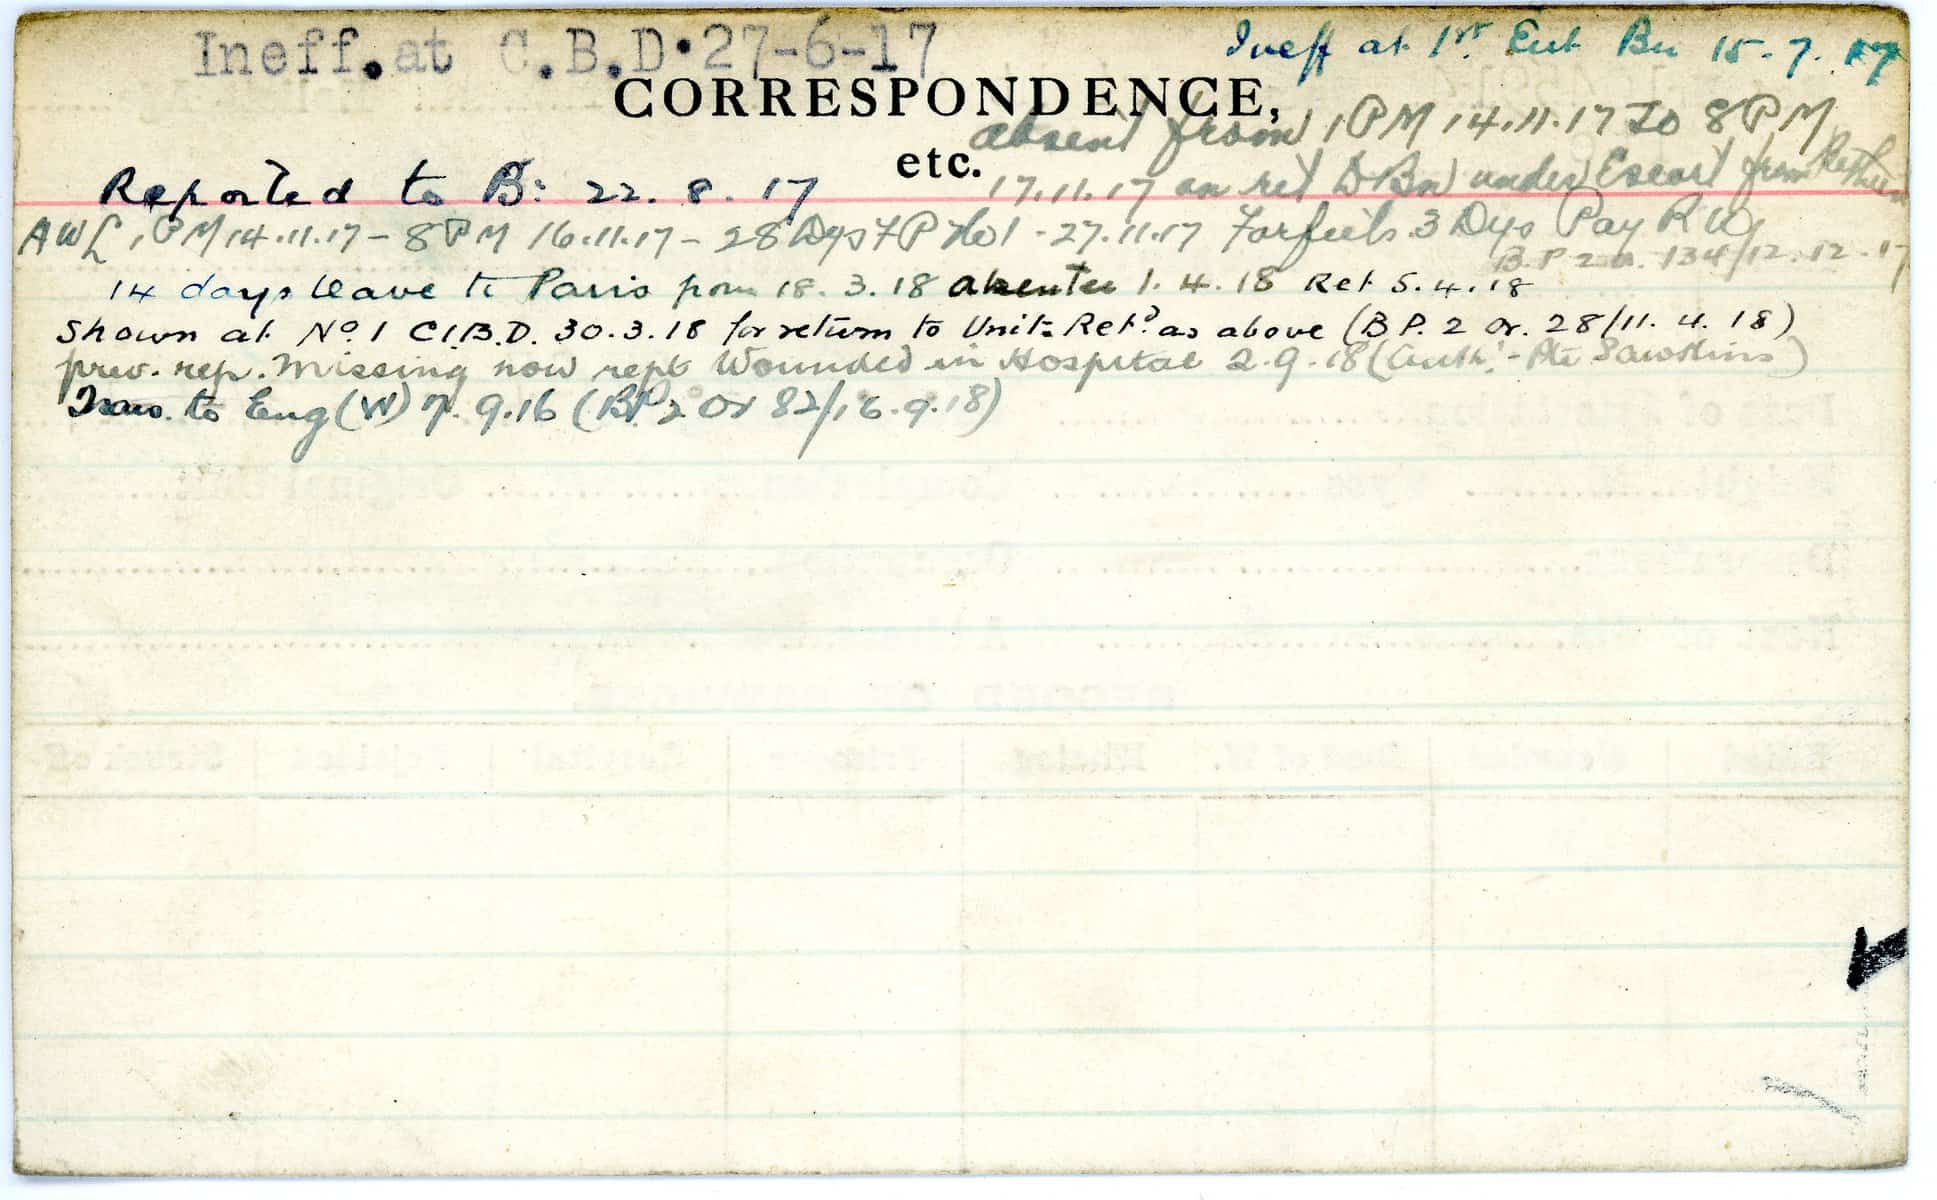 Ineff. at C.B.D. 27-6-17
Ineff at 1st Ent Bn 15.7.17
CORRESPONDENCE,
etc.
absent from 1 PM 14.11.17 To 8 PM
17.11.17 on ret D Bn under Escort from
Reported to B: 22.8.17
AWL 1 PM 14.11.17 - 8 PM 16.11.17 - 28 Dys FP No 1 - 27.11.17 Forfeits 3 Dys Pay RW
B.P 2 o. 134/12.12.17
14 days leave to Paris from 18.3.18 absentee 1.4.18 Ret 5.4.18
Shown at No 1 C.I.B.D. 30.3.18 for return to Unit: Retd as above (B P. 2 Or. 28/11.4.18)
prev. rep. Missing now rept Wounded in Hospital 2.9.18 (Auth: - Pte Sawkins)
Trans. to Eng (W) 7.9.18 (BP 2 Or 82/16.9.18)
RECORD OF